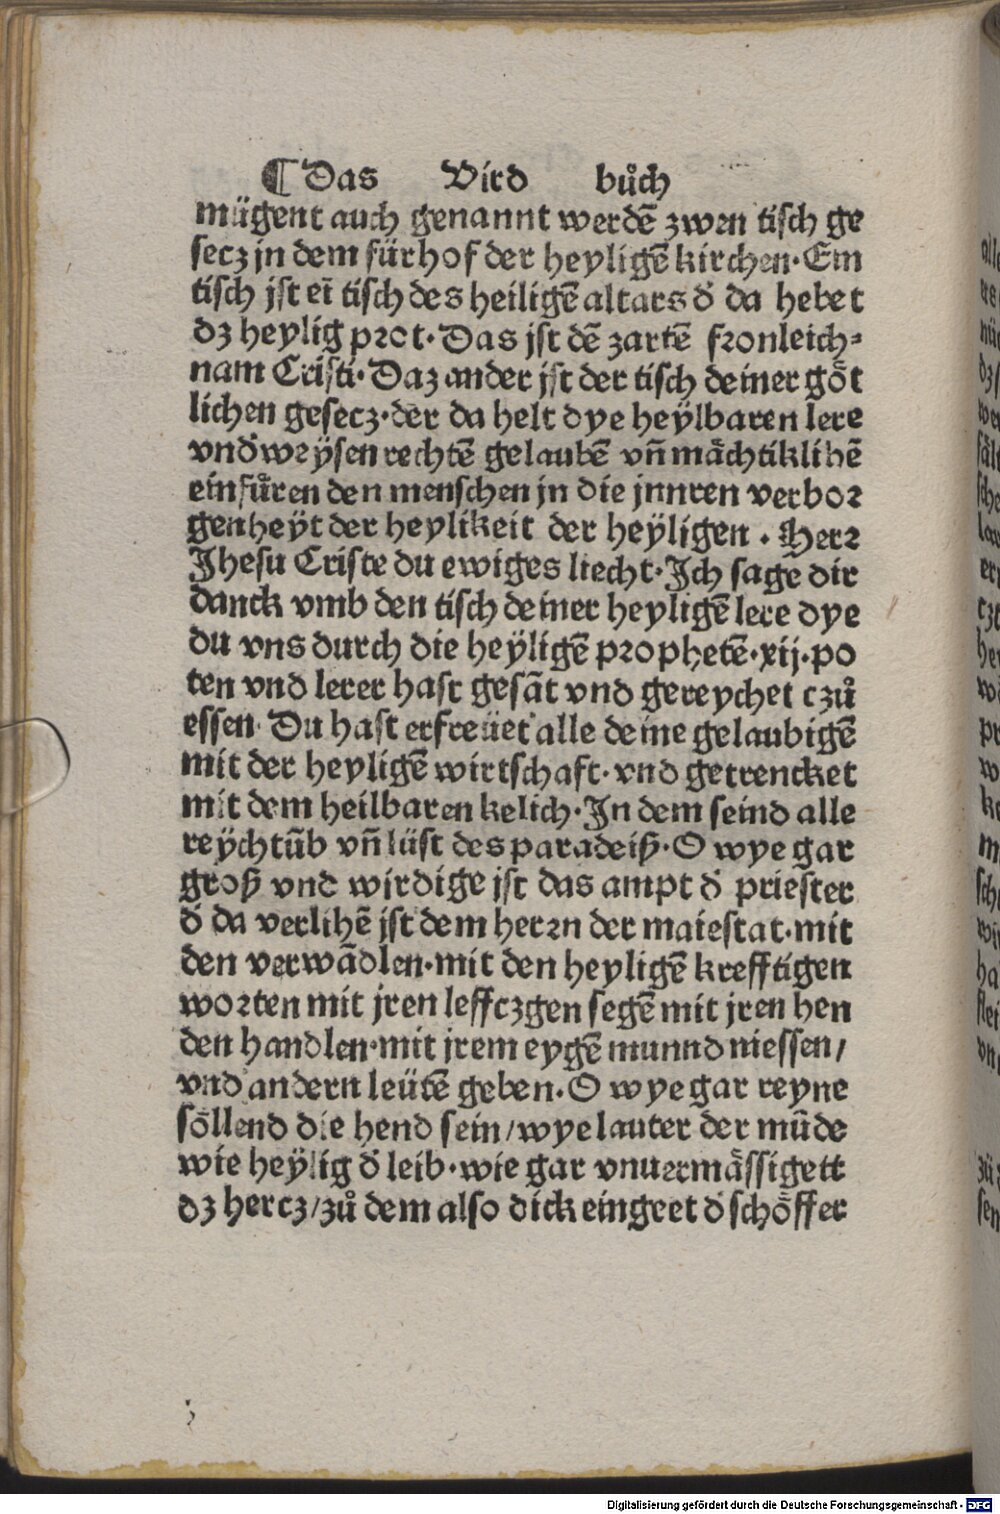 ¶ Das Vird bůch
mügent auch genannt werdē zwen tisch ge
secz jn dem fürhof der heyligē kirchen·Ein
tisch jst eī tisch des heiligē altars d̕ da hebet
dz heylig prot·Das jst dē zartē fronleich⸗
nam Cristi·Daz ander jst der tisch deiner goͤt
lichen gesecz·der da helt dye heÿlbaren lere
vnd weÿsen rechtē gelaubē vn̄ maͤchtiklihē
einfuͤren den menschen jn die jnnren verbor
genheÿt der heylikeit der heÿligen . Herr
Jhesu Criste du ewiges liecht·Ich sage dir
danck vmb den tisch deiner heyligē lere dye
du vns durch die heÿligē prophetē·xij·po
ten vnd lerer hast gesāt vnd gereychet czů
essen· Du hast erfreüet alle deine gelaubigē
mit der heyligē wirtschaft·vnd getrencket
mit dem heilbaren kelich·In dem seind alle
reÿchtūb vn̄ lüst des paradeiß·O wye gar
groß vnd wirdige jst das ampt d̕ priester
d̕ da verlihē jst dem herrn der maiestat·mit
den verwādlen·mit den heyligē krefftigen
worten mit jren leffczgen segē mit jren hen
den handlen·mit jrem eygē munnd niessen/
vnd andern leütē geben·O wye gar reyne
soͤllend die hend sein/wye lauter der mūde
wie heÿlig d̕ leib·wie gar vnuermaͤssigett
dz hercz/zů dem also dick eingeet d̕ schoͤffer
Digitalisierung gefördert durch die Deutsche Forschungsgemeinschaft - DFG